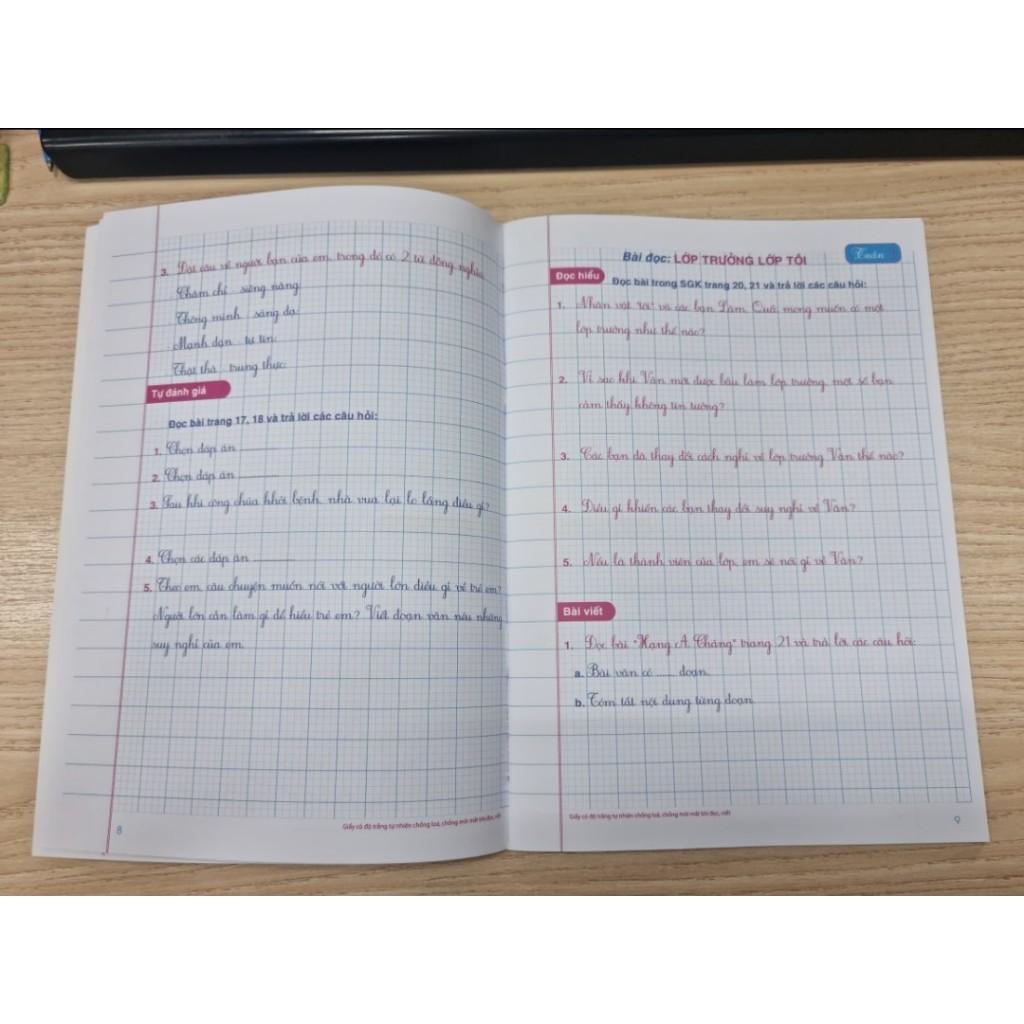 3. Đặt câu về người bạn của em, trong đó có 2 từ đồng nghĩa
Chăm chỉ - siêng năng
Thông minh - sáng dạ
Mạnh dạn - tự tin
Thật thà - trung thực
Tự đánh giá
Đọc bài trang 17, 18 và trả lời các câu hỏi:
1. Chọn đáp án
2. Chọn đáp án
3. Sau khi công chúa khỏi bệnh, nhà vua lại lo lắng điều gì?
4. Chọn các đáp án
5. Theo em, câu chuyện muốn nói với người lớn điều gì về trẻ em?
Người lớn cần làm gì để hiểu trẻ em? Viết đoạn văn nêu những
suy nghĩ của em.
Giấy có độ trắng tự nhiên chống loá, chống mỏi mắt khi đọc, viết
8
Bài đọc: LỚP TRƯỞNG LỚP TÔI
Tuần
Đọc hiểu
Đọc bài trong SGK trang 20, 21 và trả lời các câu hỏi:
1. Nhân vật "tôi" và các bạn Lâm, Quốc mong muốn có một
lớp trưởng như thế nào?
2. Vì sao khi Vân mới được bầu làm lớp trưởng, một số bạn
cảm thấy không tin tưởng?
3. Các bạn đã thay đổi cách nghĩ về lớp trưởng Vân thế nào?
4. Điều gì khiến các bạn thay đổi suy nghĩ về Vân?
5. Nếu là thành viên của lớp, em sẽ nói gì về Vân?
Bài viết
1. Đọc bài "Hạng A Cháng" trang 21 và trả lời các câu hỏi:
a. Bài văn có ...... đoạn.
b. Tóm tắt nội dung từng đoạn
Giấy có độ trắng tự nhiên chống loá, chống mỏi mắt khi đọc, viết
9